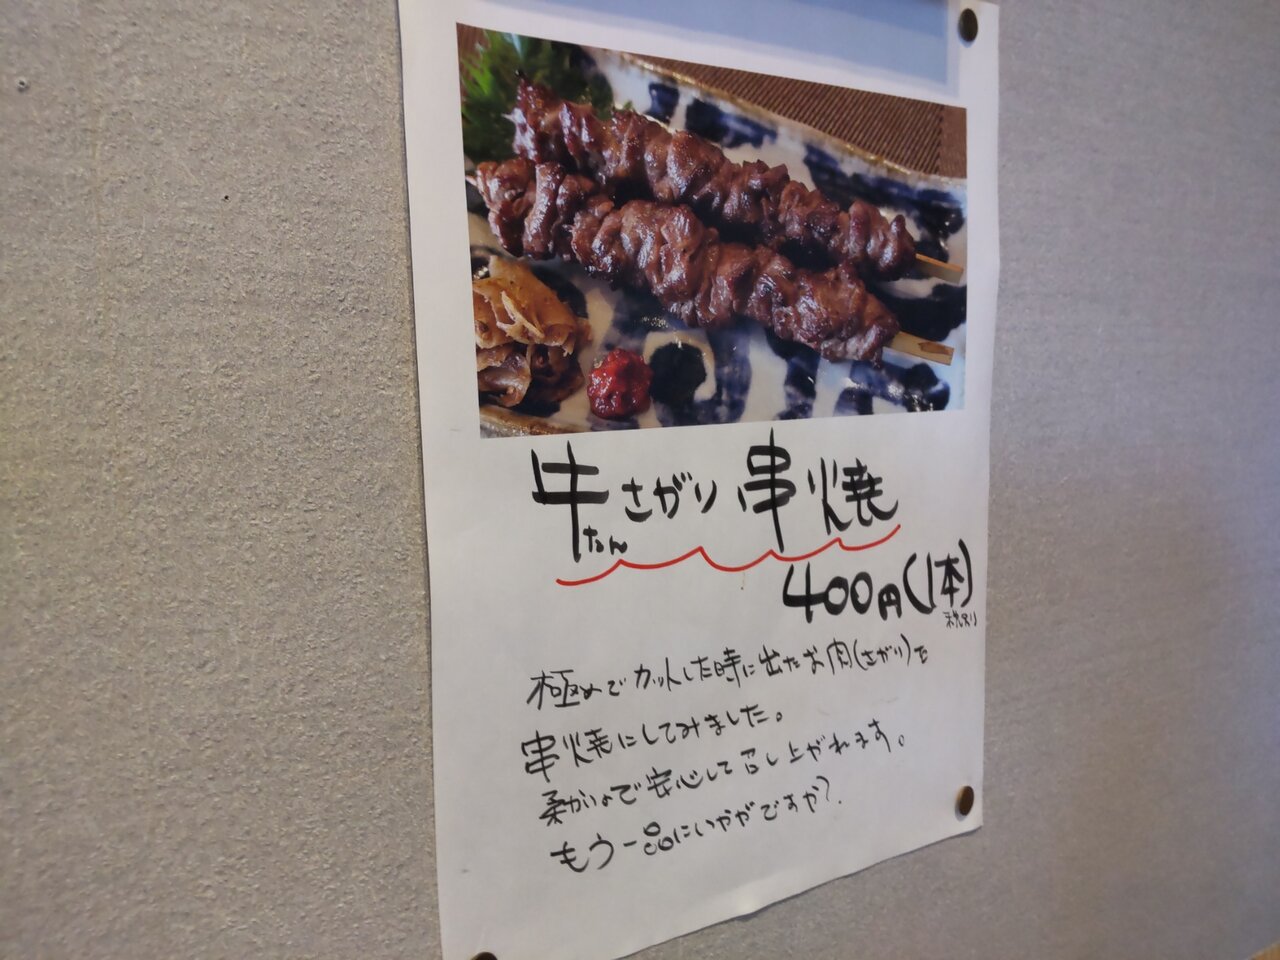 牛たんさがり串焼
400円(1本)
税込
極めでカットした時に出たお肉(さがり)で
串焼にしてみました。
柔かいので安心して召し上がれます。
もう一品にいかがですか?